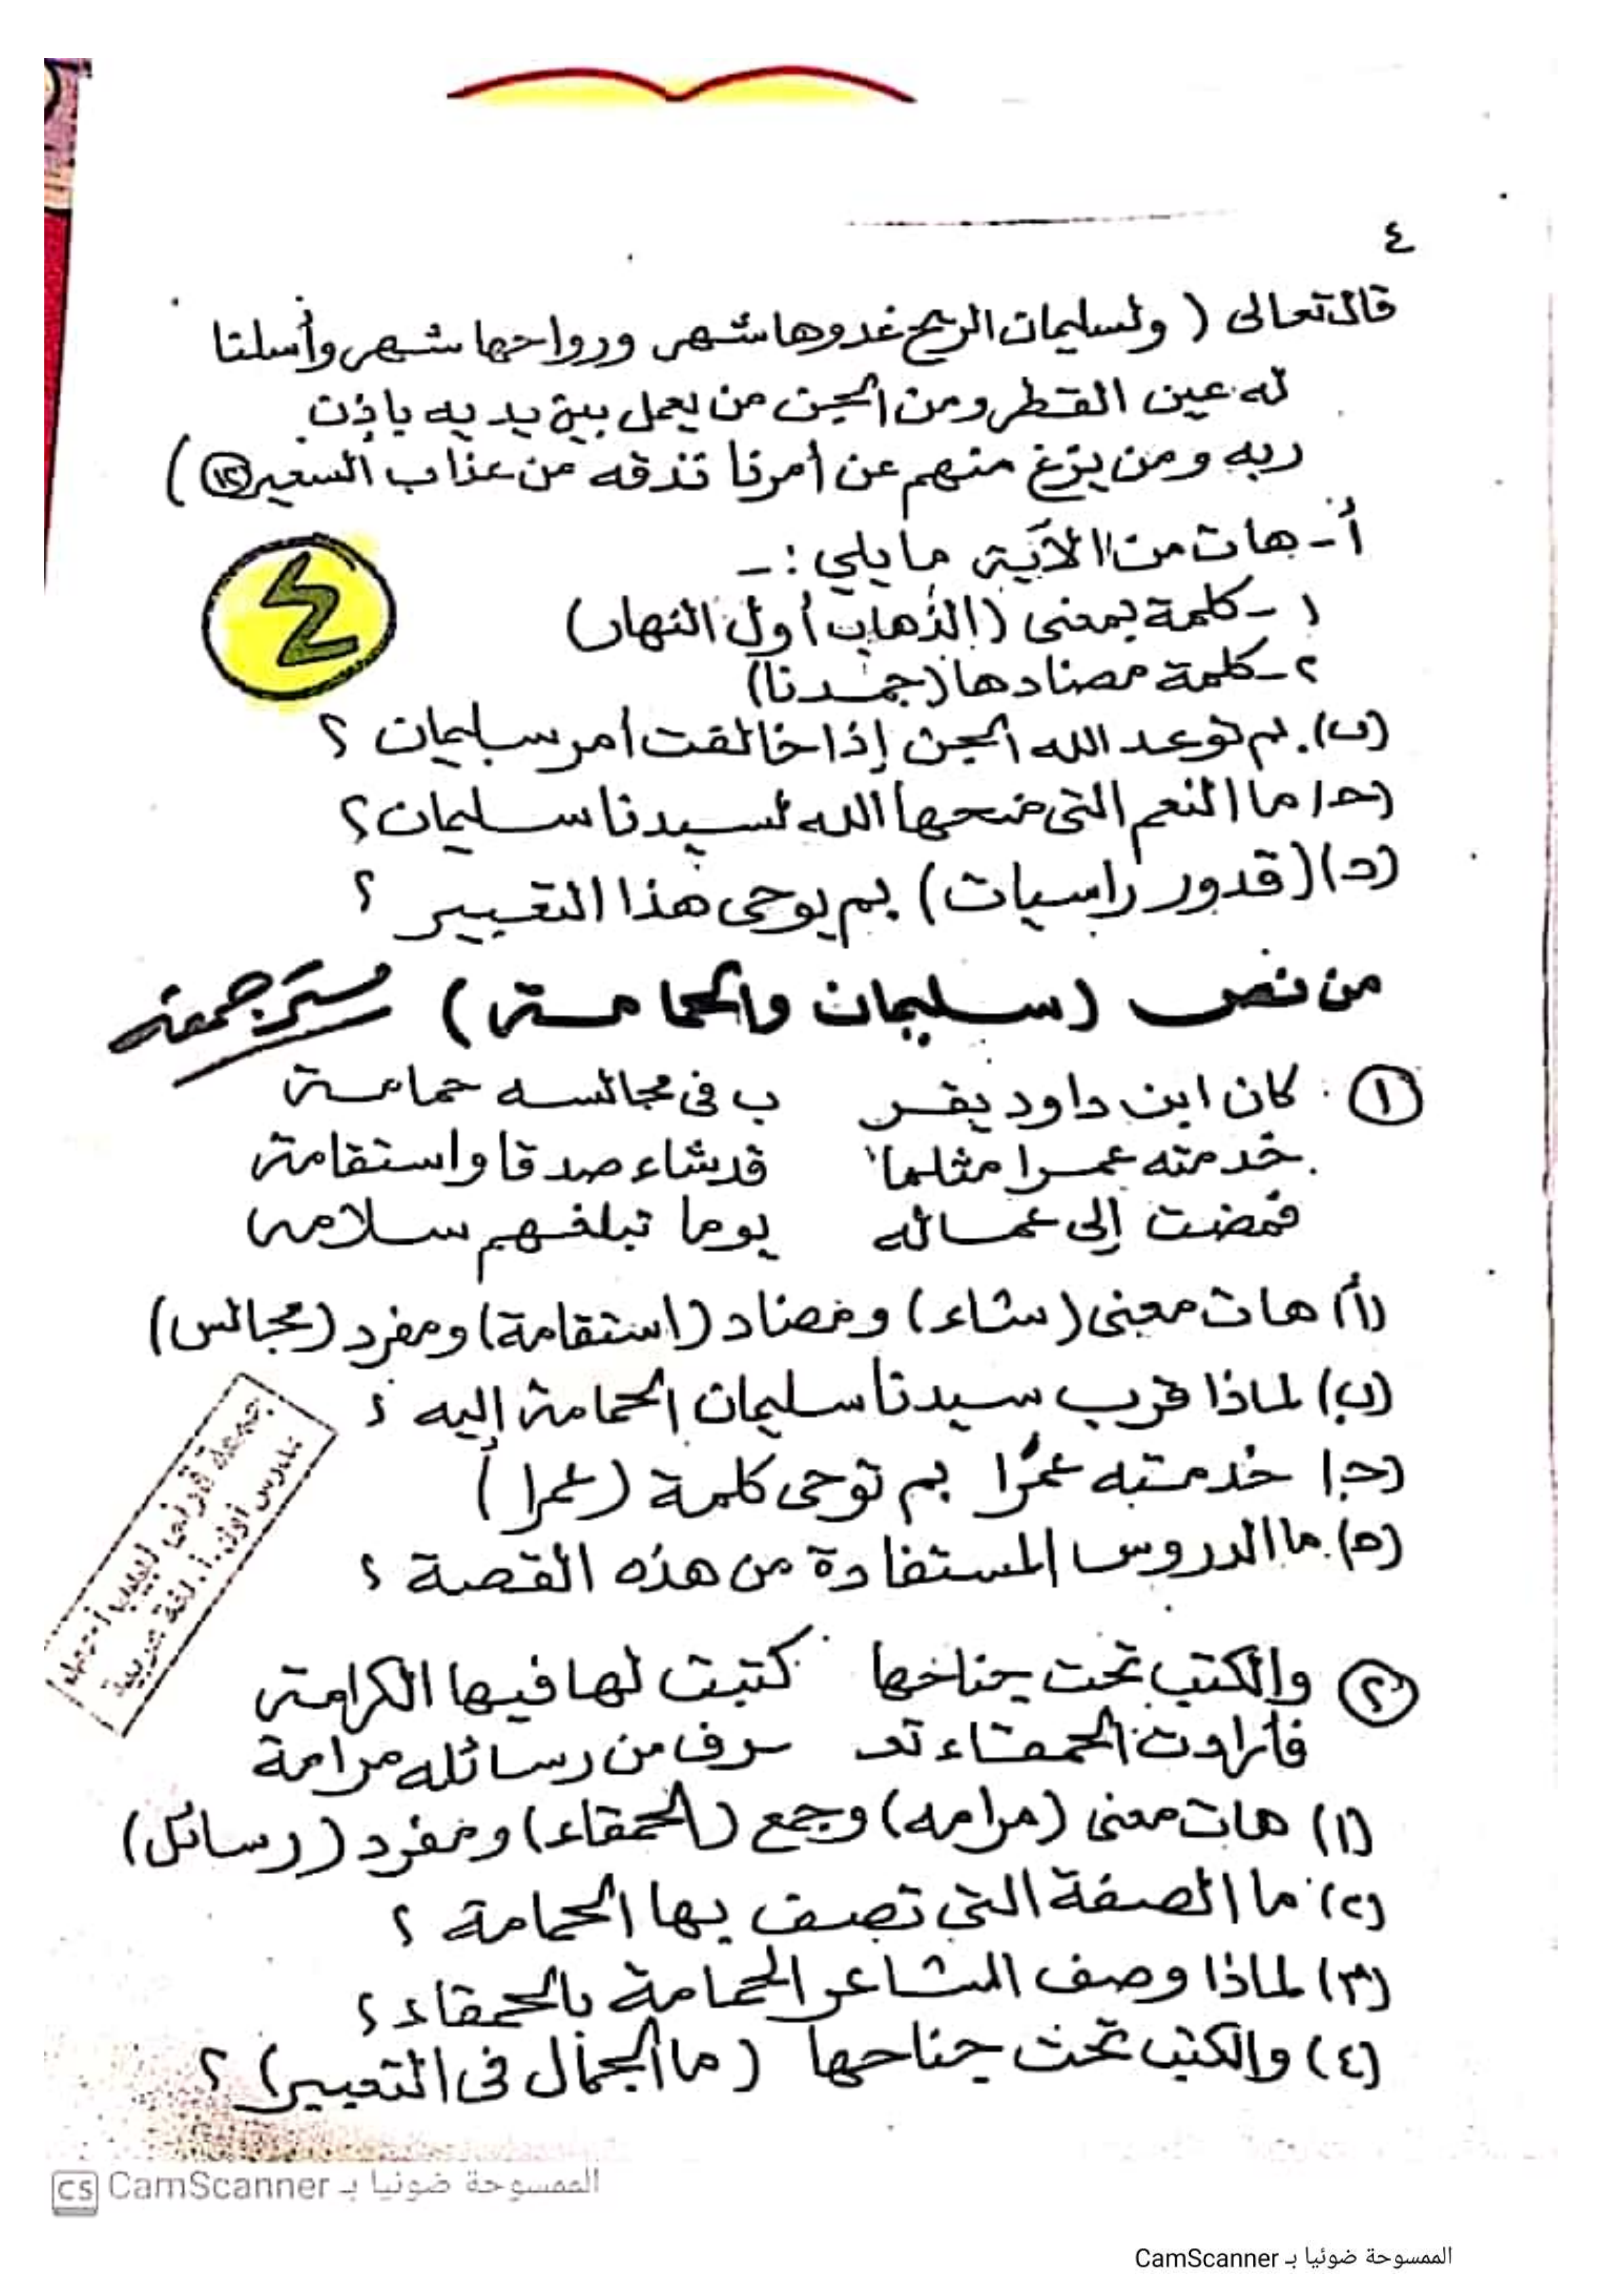 ٤
قال تعالى ( ولسليمان الريح غدوها شهر ورواحها شهر وأسلنا
له عين القطر ومن الجن من يعمل بين يديه بإذن
ربه ومن يزغ منهم عن أمرنا نذقه من عذاب السعير ١٢ )
أ - هات من الآية ما يلي : -
١ - كلمة بمعنى ( الذهاب أول النهار)
٢ - كلمة مضادها (جمدنا)
٤
(ب). بم توعد الله الجن إذا خالفت أمر سليمان ؟
(ج) ما النعم التى منحها الله لسيدنا سليمان ؟
(د) ( قدور راسيات ) بم يوحى هذا التعبير ؟
من نص ( سليمان والحمامة )
١ كان ابن داود يقر ب فى مجالسه حمامة
خدمته عمرا مثلما قد شاء صدقا واستقامة
فمضت إلى عماله يوما تبلغهم سلامه
(أ) هات معنى ( شاء ) ومضاد ( استقامة ) ومفرد ( مجالس )
(ب) لماذا قرب سيدنا سليمان الحمامة إليه ؟
(ج) خدمته عمرًا بم توحى كلمة ( عمرا )
(ه). ما الدروس المستفادة من هذه القصة ؟
جمعة قرنى لبيب
مدرس أول أ. لغة عربية
٢ والكتب تحت جناحها كتبت لها فيها الكرامة
فأرادت الحمقاء تعـ ـرف من رسائله مرامة
(١) هات معنى ( مرامه ) وجمع ( الحمقاء ) ومفرد ( رسائل )
(٢) ما الصفة التى تصف بها الحمامة ؟
(٣) لماذا وصف الشاعر الحمامة بالحمقاء ؟
(٤) والكتب تحت جناحها ( ما الجمال فى التعبير ) ؟
CS CamScanner الممسوحة ضوئيا بـ
الممسوحة ضوئيا بـ CamScanner